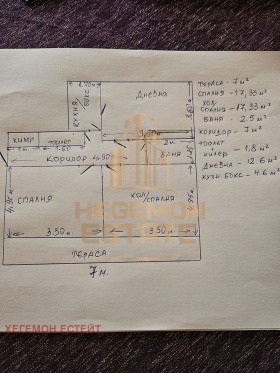 2.70м
КУХНЯ
БОКС
ДНЕВНА
3.60м
ТЕРАСА - 7 м²
СПАЛНЯ - 17,33 м²
ХОЛ/
СПАЛНЯ - 17,33 м²
БАНЯ - 2.5 м²
КОРИДОР - 7 м²
ТОАЛЕТ
КИЛЕР - 1,8 м²
ДНЕВНА - 12.6 м²
КУХН. БОКС - 4.6 м²
КИЛЕР
ТОАЛЕТ
2м
1м
1.60
КОРИДОР 4.90м
БАНЯ
HEGEMON
ESTATE
4.95м
СПАЛНЯ
ХОЛ/
СПАЛНЯ
4.95м
3.50м
3.50м
ТЕРАСА
7м.
ХЕГЕМОН ЕСТЕЙТ